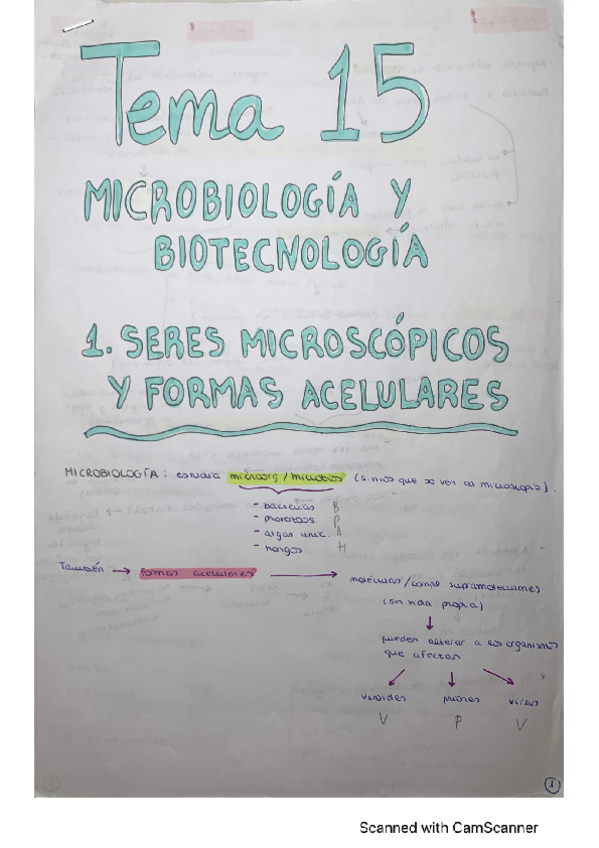 Tema 15
MICROBIOLOGÍA Y
BIOTECNOLOGÍA
1. SERES MICROSCÓPICOS
Y FORMAS ACELULARES
MICROBIOLOGÍA: estudia microorg/microbios (s. vivos que se ven al microscopio).
- bacterias B
- protozoos P
- algas unic. A
- hongos H
También → formas acelulares → moléculas/comp. supramoleculares
(sin vida propia)
pueden alterar a los organismos
que afectan
viroides priones virus
V P V
1
Scanned with CamScanner